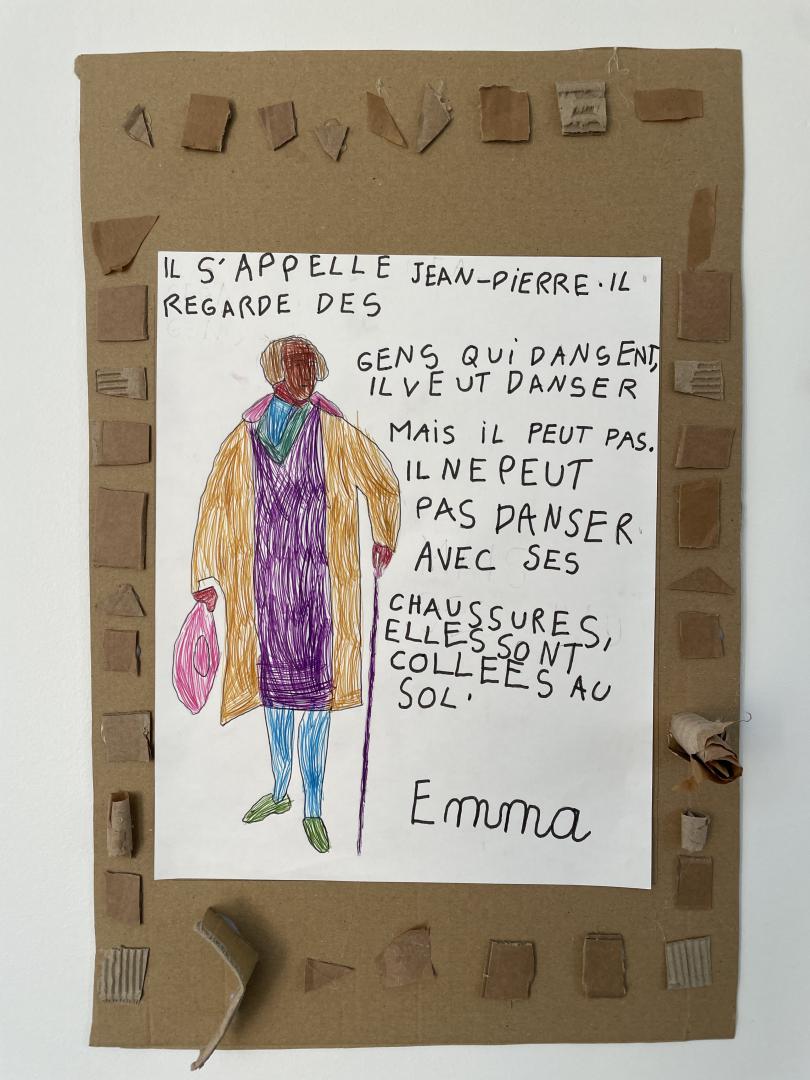 IL S'APPELLE JEAN-PIERRE. IL
REGARDE DES
GENS QUI DANSENT,
IL VEUT DANSER
MAIS IL PEUT PAS.
IL NE PEUT
PAS DANSER
AVEC SES
CHAUSSURES,
ELLES SONT
COLLEES AU
SOL.
Emma